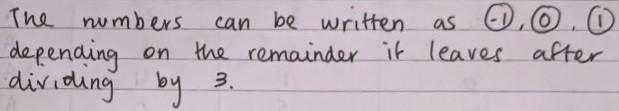 The numbers can be written as ⊖1, ⓪, ①
depending on the remainder it leaves after
dividing by 3.